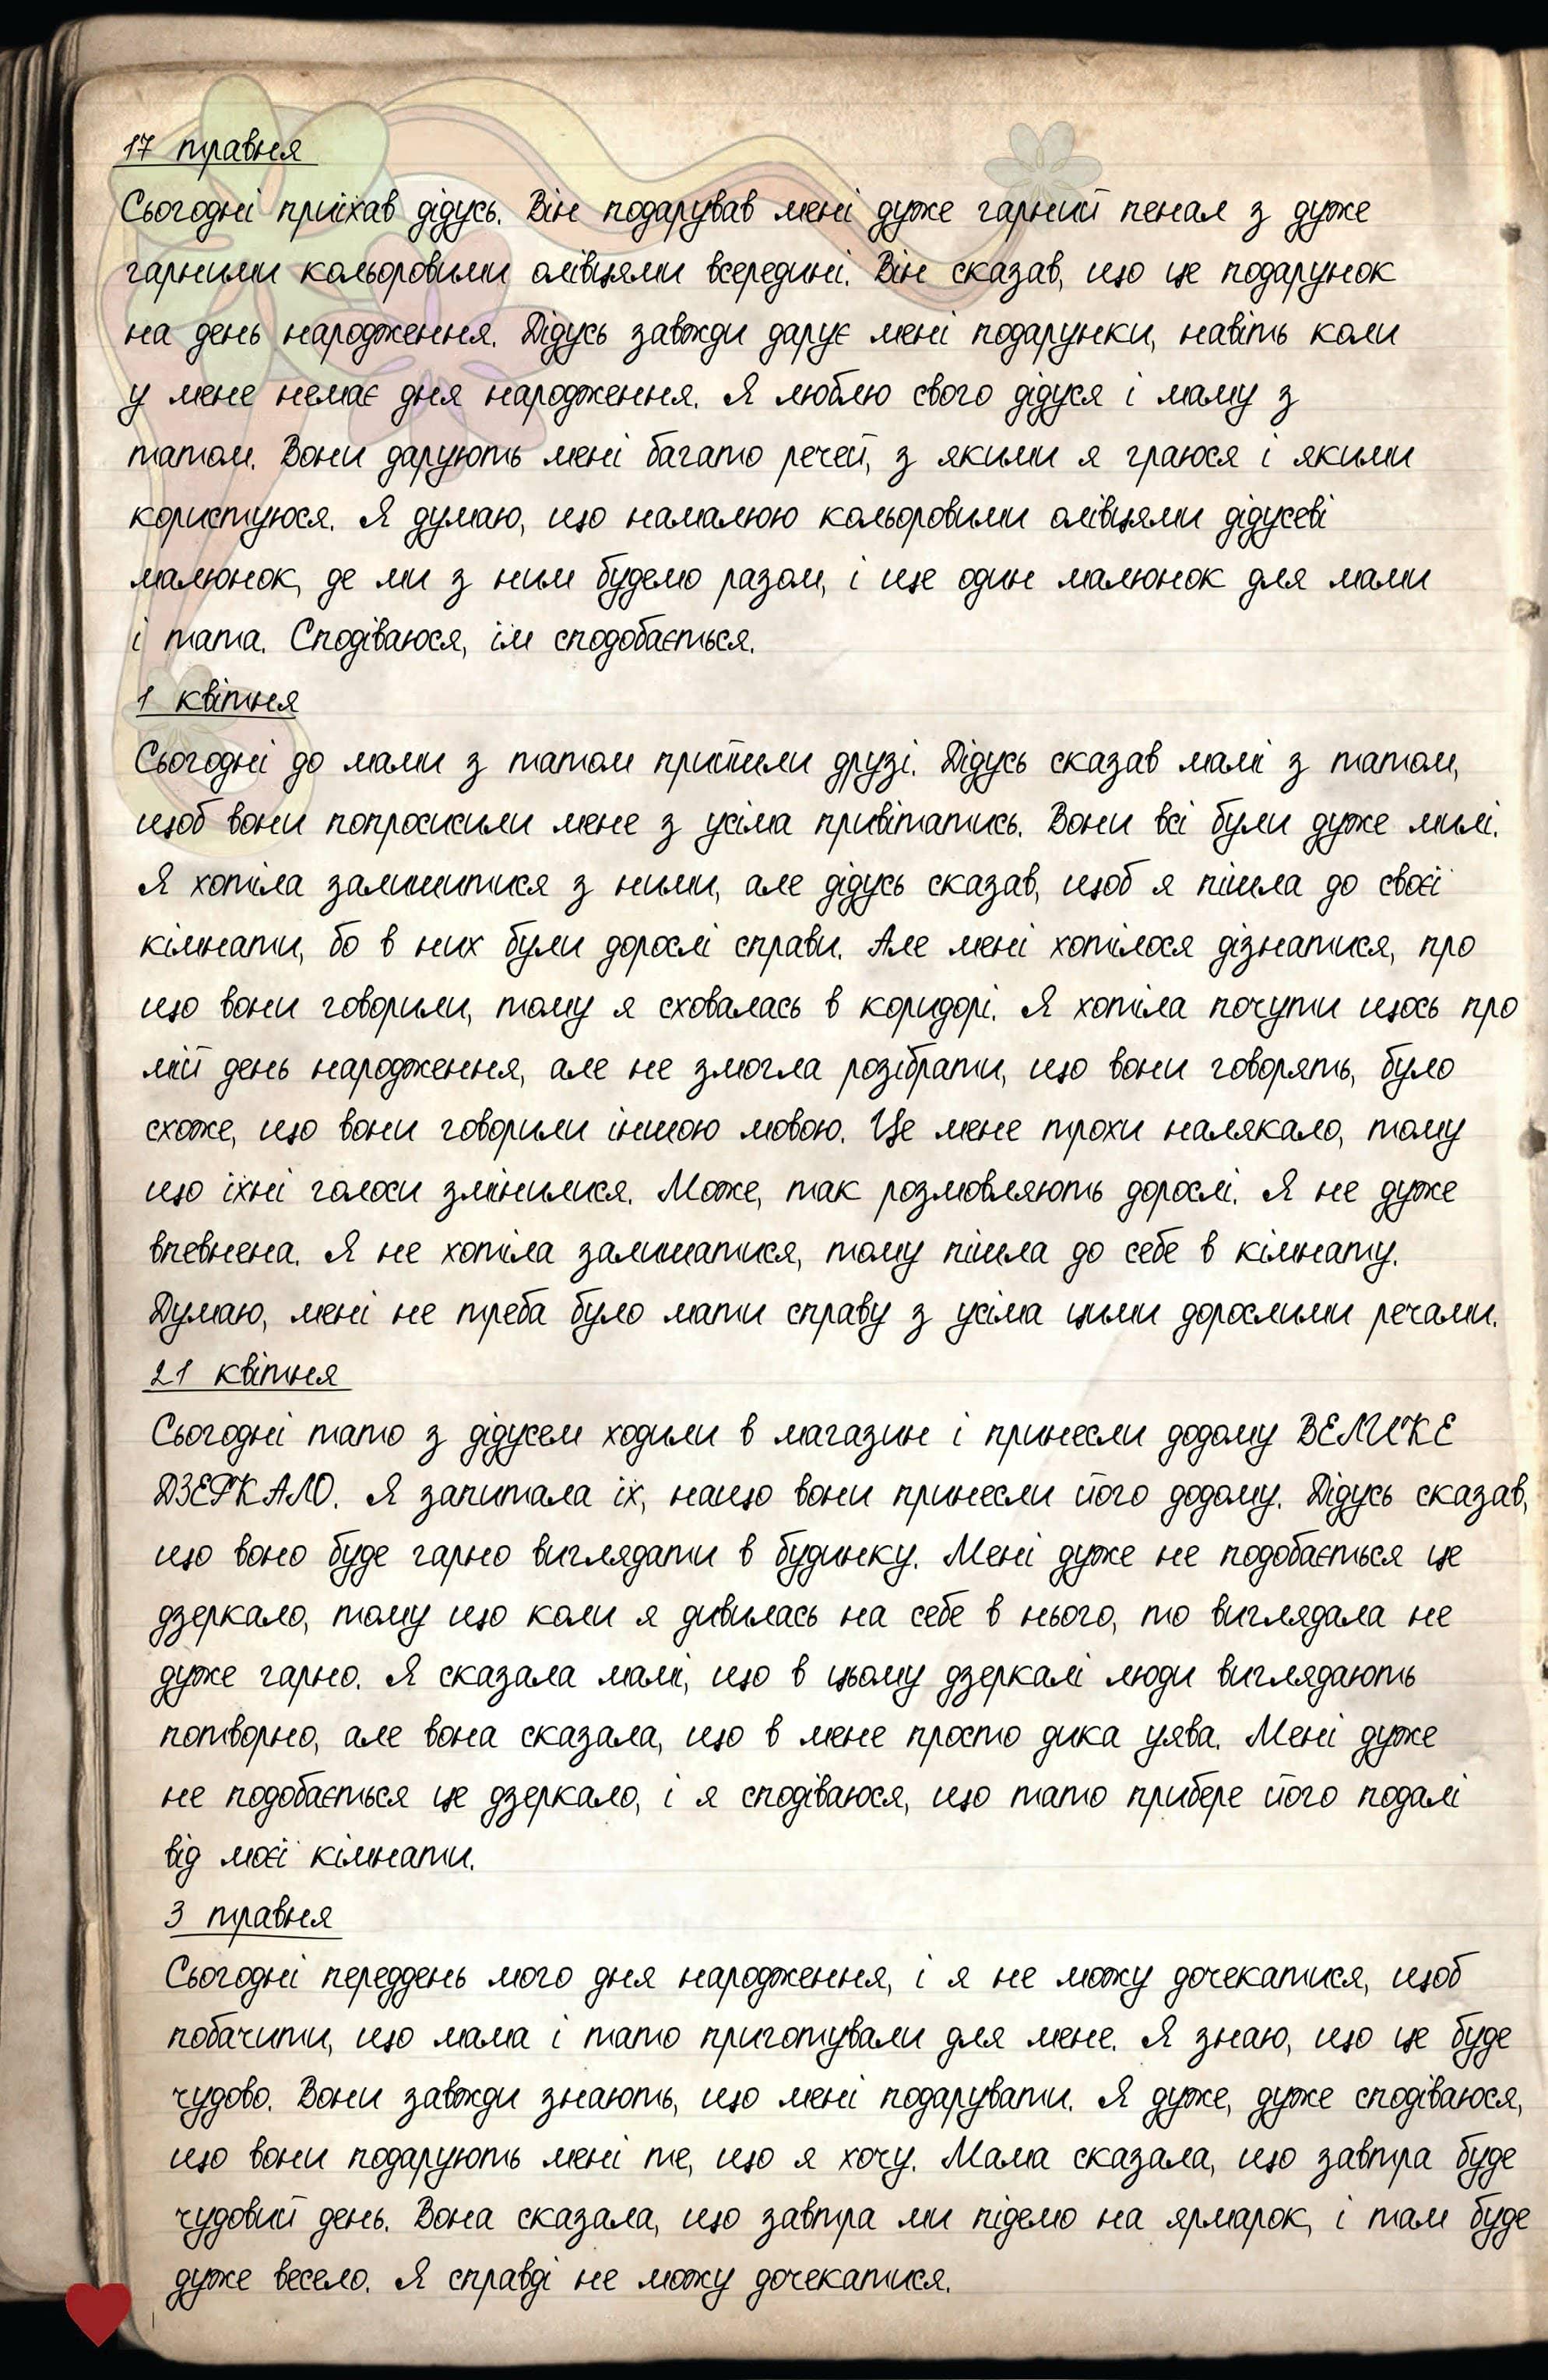 17 травня
Сьогодні приїхав дідусь. Він подарував мені дуже гарний пенал з дуже
гарними кольоровими олівцями всередині. Він сказав, що це подарунок
на день народження. Дідусь завжди дарує мені подарунки, навіть коли
у мене немає дня народження. Я люблю свого дідуся і маму з
татом. Вони дарують мені багато речей, з якими я граюся і якими
користуюся. Я думаю, що намалюю кольоровими олівцями дідусеві
малюнок, де ми з ним будемо разом, і ще один малюнок для мами
і тата. Сподіваюся, їм сподобається.
1 квітня
Сьогодні до мами з татом прийшли друзі. Дідусь сказав мамі з татом,
щоб вони попросисили мене з усіма привітатись. Вони всі були дуже милі.
Я хотіла залишитися з ними, але дідусь сказав, щоб я пішла до своєї
кімнати, бо в них були дорослі справи. Але мені хотілося дізнатися, про
що вони говорили, тому я сховалась в коридорі. Я хотіла почути щось про
мій день народження, але не змогла розібрати, що вони говорять, було
схоже, що вони говорили іншою мовою. Це мене трохи налякало, тому
що їхні голоси змінилися. Може, так розмовляють дорослі. Я не дуже
впевнена. Я не хотіла залишатися, тому пішла до себе в кімнату.
Думаю, мені не треба було мати справу з усіма цими дорослими речами.
21 квітня
Сьогодні тато з дідусем ходили в магазин і принесли додому ВЕЛИКЕ
ДЗЕРКАЛО. Я запитала їх, нащо вони принесли його додому. Дідусь сказав,
що воно буде гарно виглядати в будинку. Мені дуже не подобається це
дзеркало, тому що коли я дивилась на себе в нього, то виглядала не
дуже гарно. Я сказала мамі, що в цьому дзеркалі люди виглядають
потворно, але вона сказала, що в мене просто дика уява. Мені дуже
не подобається це дзеркало, і я сподіваюся, що тато прибере його подалі
від моєї кімнати.
3 травня
Сьогодні переддень мого дня народження, і я не можу дочекатися, щоб
побачити, що мама і тато приготували для мене. Я знаю, що це буде
чудово. Вони завжди знають, що мені подарувати. Я дуже, дуже сподіваюся,
що вони подарують мені те, що я хочу. Мама сказала, що завтра буде
чудовий день. Вона сказала, що завтра ми підемо на ярмарок, і там буде
дуже весело. Я справді не можу дочекатися.